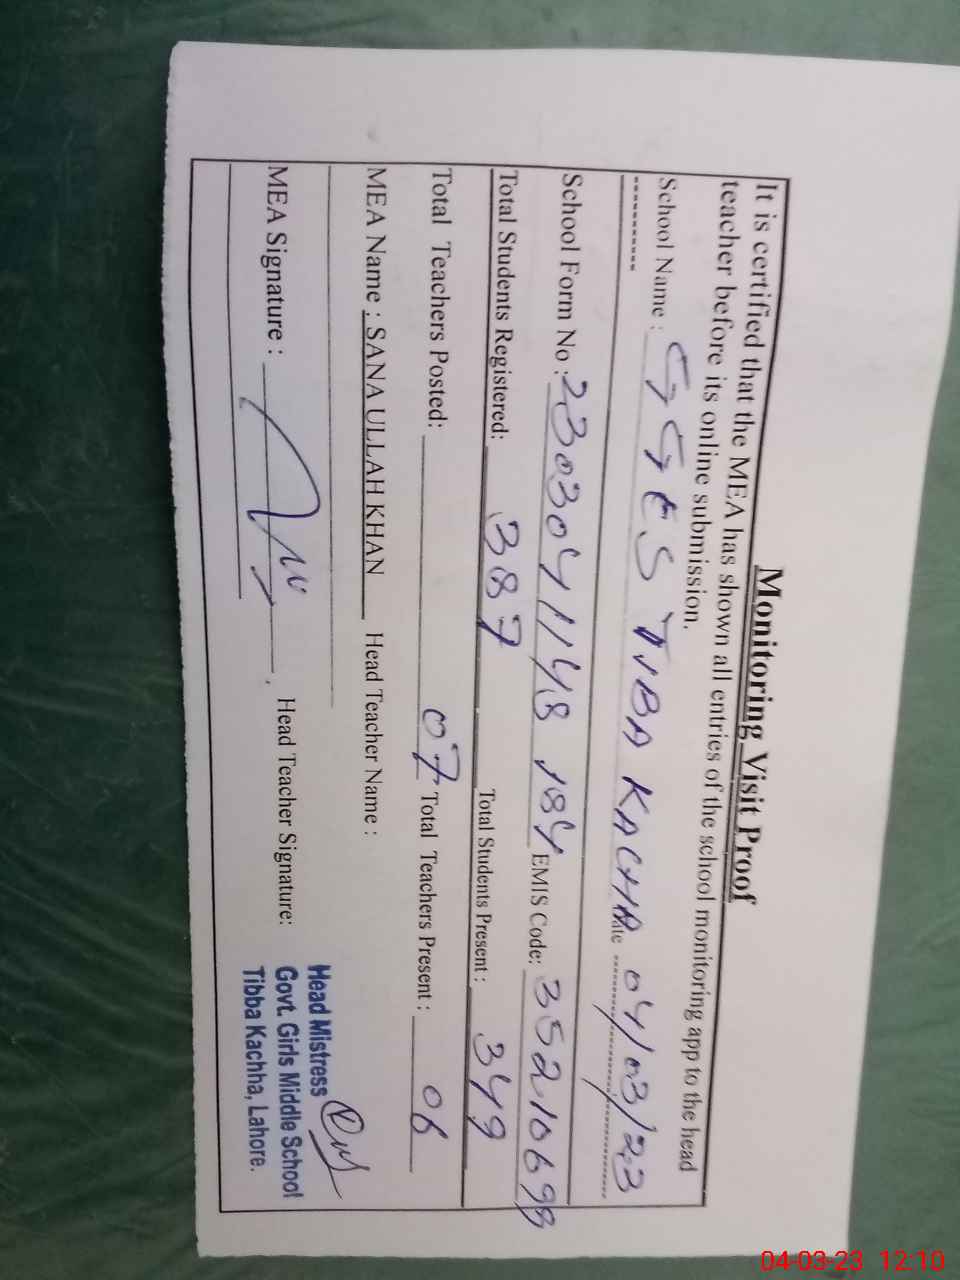 Monitoring Visit Proof
It is certified that the MEA has shown all entries of the school monitoring app to the head
teacher before its online submission.
School Name : GGES TIBBA KACHA Date 04/03/23
----------
School Form No : 230304 1148 184 EMIS Code: 35210698
Total Students Registered: 387 Total Students Present : 349
Total Teachers Posted: 07 Total Teachers Present : 06
MEA Name : SANA ULLAH KHAN Head Teacher Name :
MEA Signature : Head Teacher Signature:
Head Mistress
Govt. Girls Middle School
Tibba Kachha, Lahore.
04-03-23 12:10